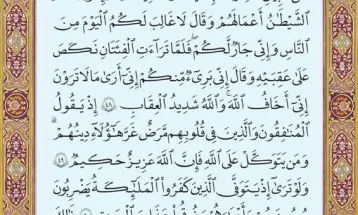 الشَّيْطَٰنُ أَعْمَٰلَهُمْ وَقَالَ لَا غَالِبَ لَكُمُ الْيَوْمَ مِنَ
النَّاسِ وَإِنِّي جَارٌ لَّكُمْ ۖ فَلَمَّا تَرَآءَتِ الْفِئَتَانِ نَكَصَ
عَلَىٰ عَقِبَيْهِ وَقَالَ إِنِّي بَرِيٓءٌ مِّنكُمْ إِنِّيٓ أَرَىٰ مَا لَا تَرَوْنَ
إِنِّيٓ أَخَافُ اللَّهَ ۚ وَاللَّهُ شَدِيدُ الْعِقَابِ ٤٨ إِذْ يَقُولُ
الْمُنَٰفِقُونَ وَالَّذِينَ فِي قُلُوبِهِم مَّرَضٌ غَرَّ هَٰٓؤُلَآءِ دِينُهُمْ ۗ
وَمَن يَتَوَكَّلْ عَلَى اللَّهِ فَإِنَّ اللَّهَ عَزِيزٌ حَكِيمٌ ٤٩
وَلَوْ تَرَىٰٓ إِذْ يَتَوَفَّى الَّذِينَ كَفَرُوا۟ ۙ الْمَلَٰٓئِكَةُ يَضْرِبُونَ